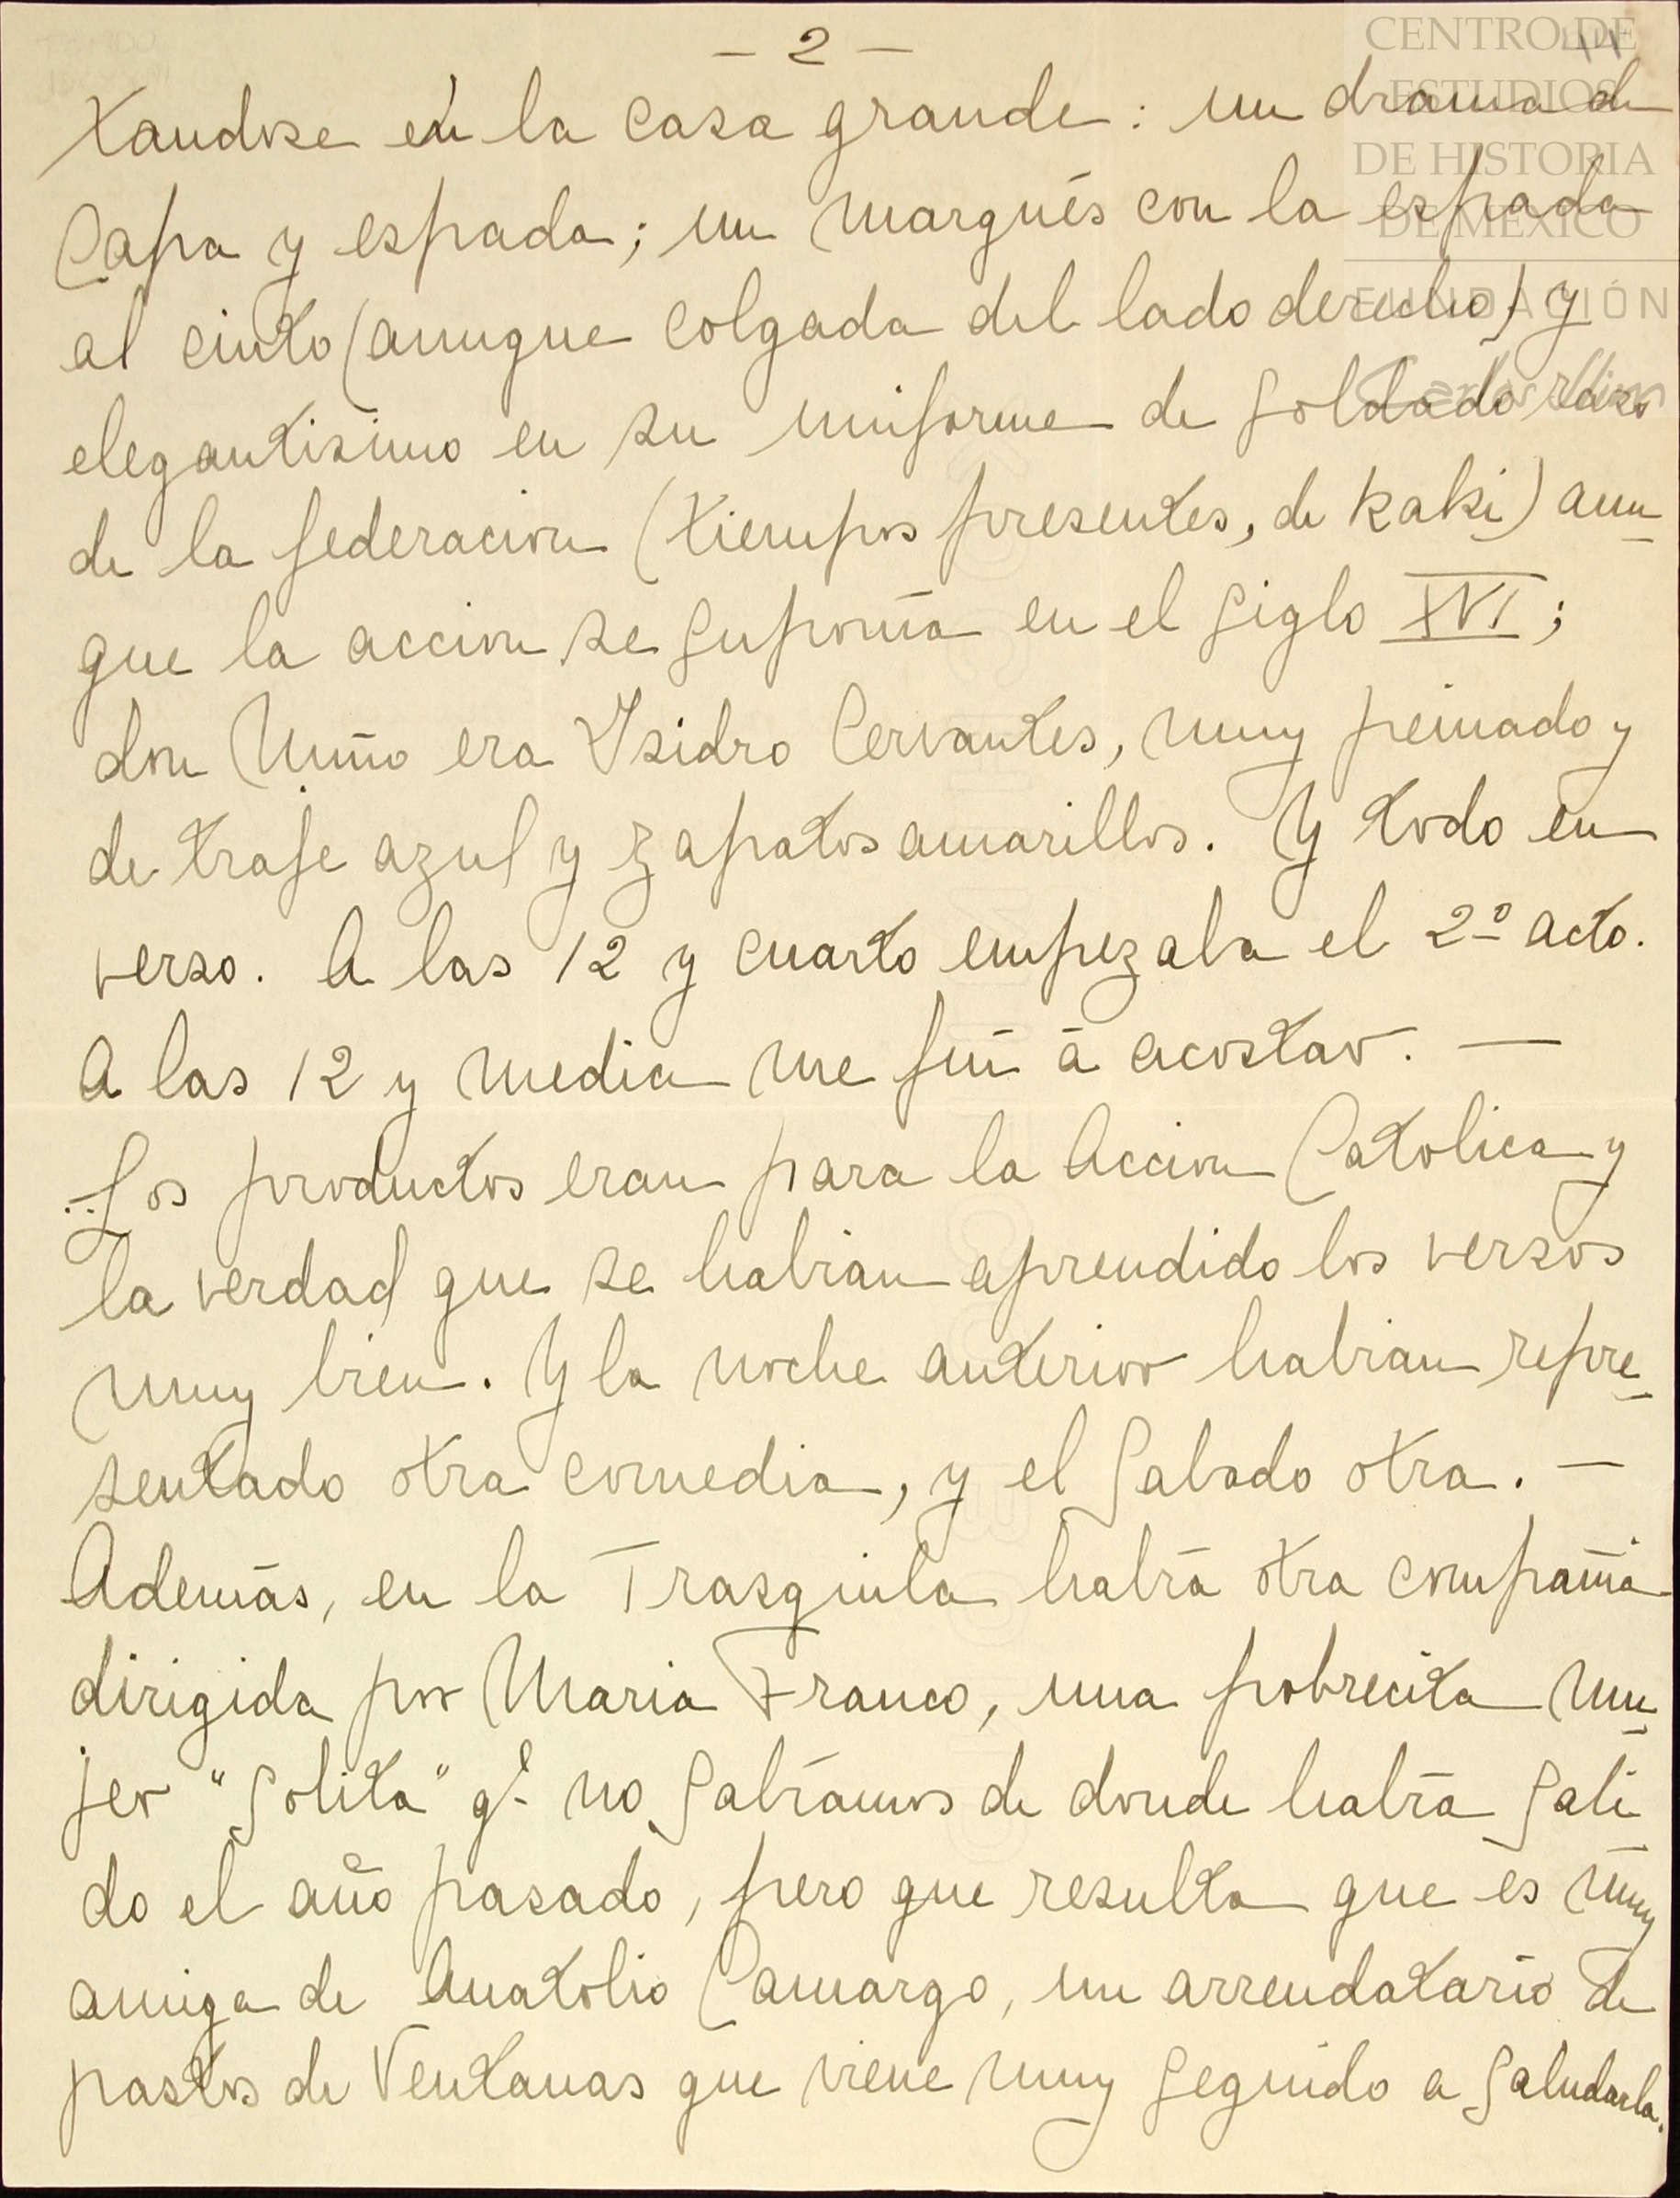 - 2 -
44
CENTRO DE
ESTUDIOS
DE HISTORIA
DE MEXICO
FUNDACIÓN
Carlos Slim
tandose en la casa grande: un drama de
Capa y espada; un Marqués con la espada
al cinto (aunque colgada del lado derecho) y
elegantisimo en su uniforme de soldado raso
de la federacion (tiempos presentes, de kaki) aun-
que la accion se suponía en el siglo XVI;
don Nuño era Ysidro Cervantes, muy peinado y
de traje azul y zapatos amarillos. Y todo en
verso. A las 12 y cuarto empezaba el 2º acto.
A las 12 y media me fuí á acostar. —
Los productos eran para la Accion Catolica y
la verdad que se habian aprendido los versos
muy bien. Y la noche anterior habian repre-
sentado otra comedia, y el Sabado otra. —
Además, en la Trasquila habrá otra compañía
dirigida por Maria Franco, una pobrecita mu-
jer "solita" qe no sabíamos de donde habrá sali-
do el año pasado, pero que resulta que es muy
amiga de Anatolio Camargo, un arrendatario de
pastos de Ventanas que viene muy seguido a saludarla.